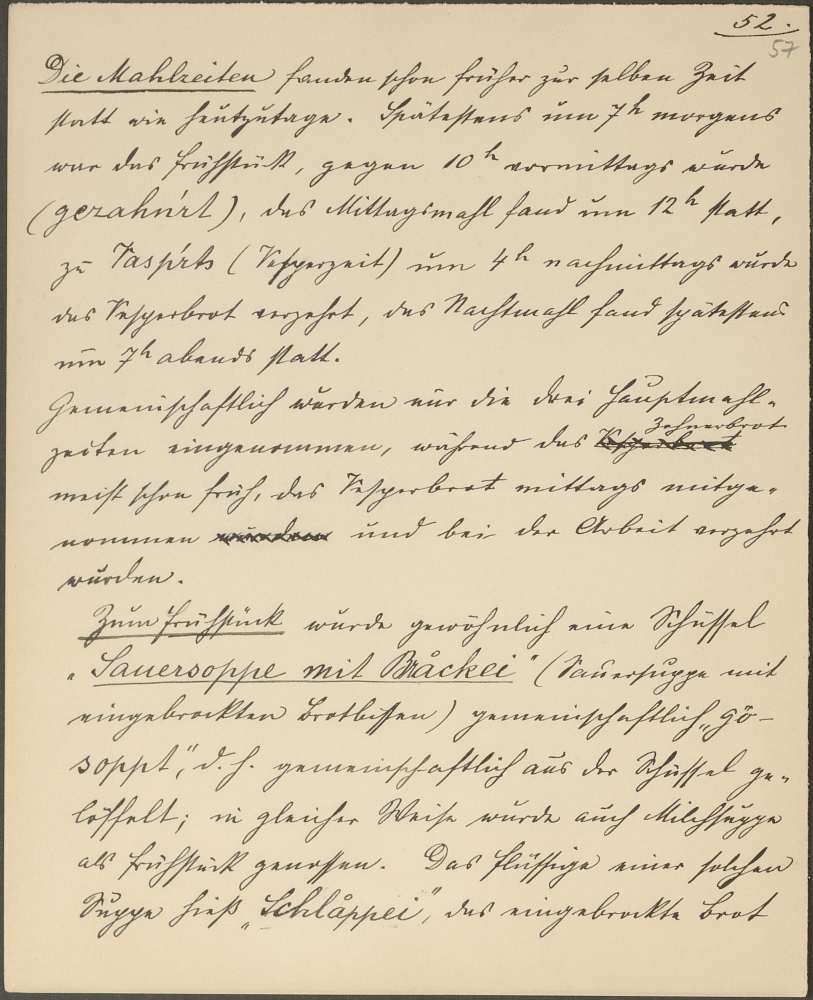 52.
57
Die Mahlzeiten fanden schon früher zur selben Zeit
statt wie heutzutage. Spätestens um 7h morgens
war das Frühstück, gegen 10h vormittags wurde
(gezahn'rt), das Mittagsmahl fand um 12h statt,
zu Vaspárts (Vesperzeit) um 4h nachmittags wurde
das Vesperbrot verzehrt, das Nachtmahl fand spätestens
um 7h abends statt.
Gemeinschaftlich wurden nur die drei Hauptmahl-
zeiten eingenommen, während das Vesperbrot Zehnerbrot
meist schon früh, das Vesperbrot mittags mitge-
nommen wurden und bei der Arbeit verzehrt
wurden.
Zum Frühstück wurde gewöhnlich eine Schüssel
„Sauersoppe mit Bråckei" (Sauersuppe mit
eingebrockten Brotbissen) gemeinschaftlich „gö-
soppt", d. h. gemeinschaftlich aus der Schüssel ge-
löffelt; in gleicher Weise wurde auch Milchsuppe
als Frühstück genossen. Das Flüssige einer solchen
Suppe hieß „Schlåppei", das eingebrockte Brot